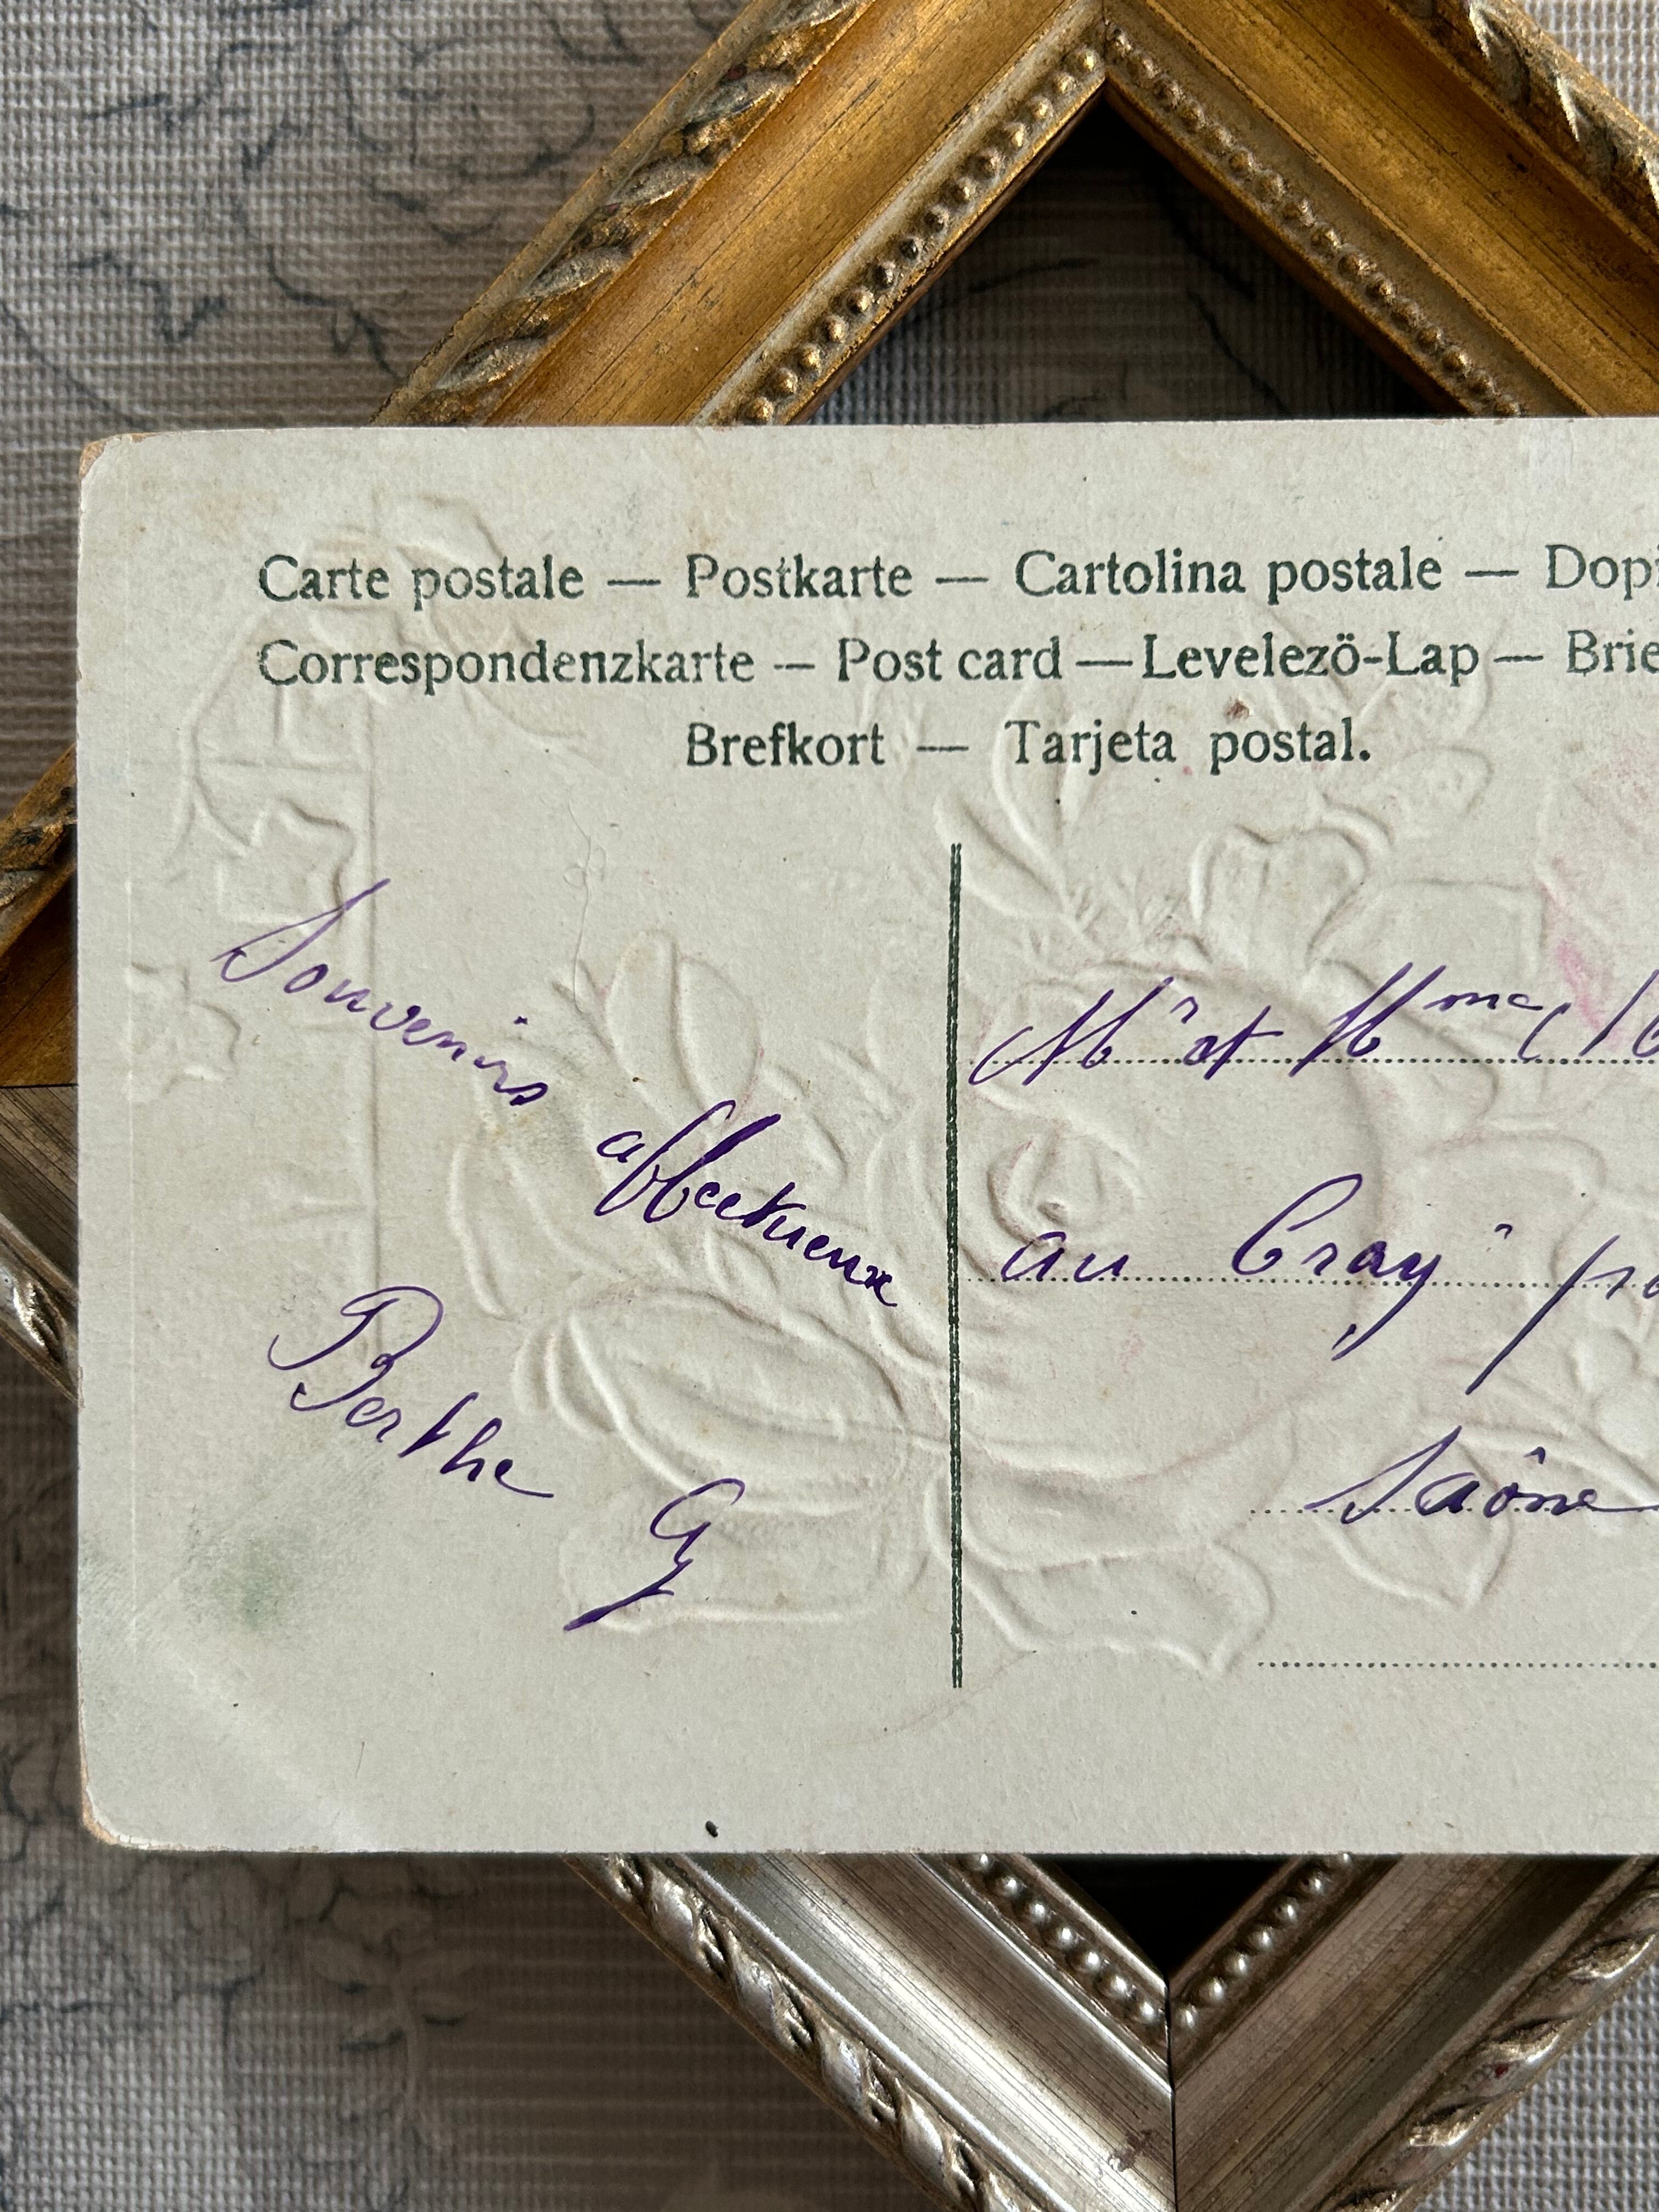 Carte postale — Postkarte — Cartolina postale — Dopi
Correspondenzkarte — Post card — Levelezö-Lap — Brie
Brefkort — Tarjeta postal.
Souvenirs
affectueux
Berthe
G
Mr et Mme
au Cray
Saône